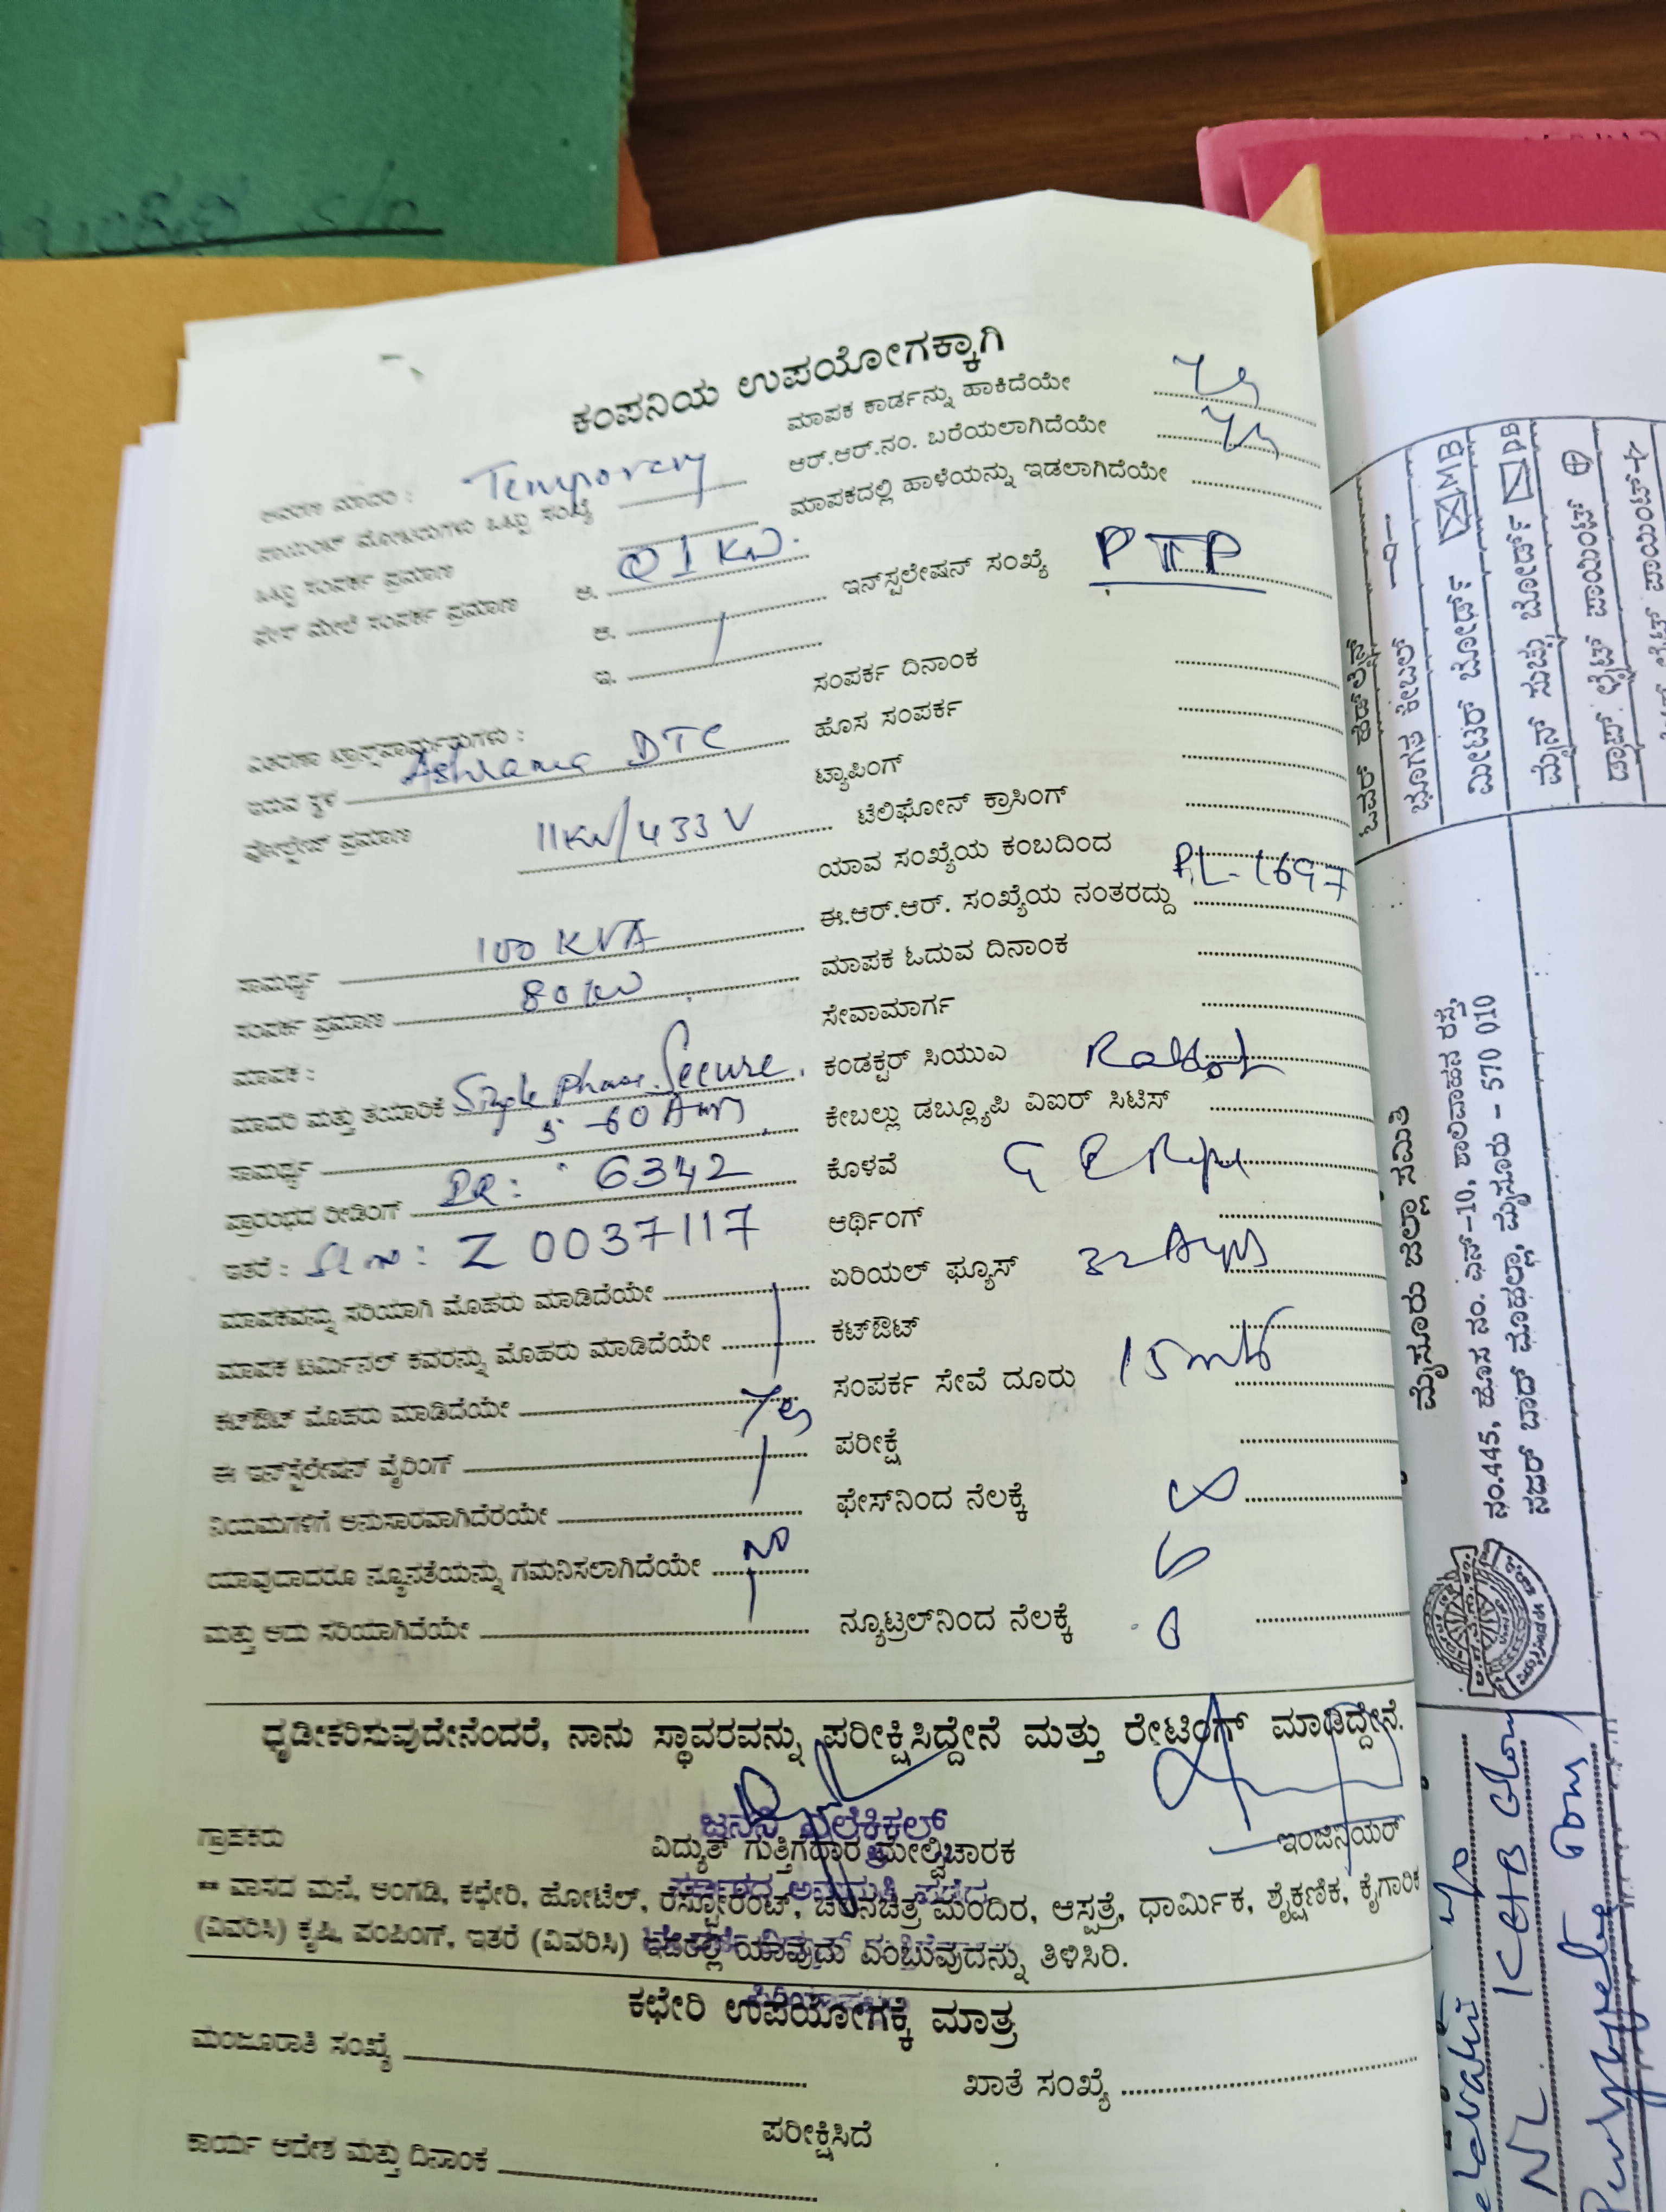 ಕಂಪನಿಯ ಉಪಯೋಗಕ್ಕಾಗಿ
ಮಾದರಿ : Temporary
ಪಾಯಿಂಟ್ ಮೋಟಾರುಗಳು ಒಟ್ಟು ಸಂಖ್ಯೆ
ಒಟ್ಟು ಸಂಪರ್ಕ ಪ್ರಮಾಣ ಅ. 01 KW.
ಫೇಸ್ ಮೇಲೆ ಸಂಪರ್ಕ ಪ್ರಮಾಣ ಆ.
ಇ.
ವಿತರಣಾ ಟ್ರಾನ್ಸ್‌ಫಾರ್ಮರುಗಳು :
ಇರುವ ಸ್ಥಳ Ashrama DTC
ವೋಲ್ಟೇಜ್ ಪ್ರಮಾಣ 11KV/433V
ಸಾಮರ್ಥ್ಯ 100 KVA
ಸಂಪರ್ಕ ಪ್ರಮಾಣ 80 KW
ಮಾಪಕ :
ಮಾದರಿ ಮತ್ತು ತಯಾರಿಕೆ Single Phase. Secure.
ಸಾಮರ್ಥ್ಯ 5-60 Amps
ಪ್ರಾರಂಭದ ರೀಡಿಂಗ್ 6342
ಇತರೆ : Sl no: Z 0037117
ಮಾಪಕವನ್ನು ಸರಿಯಾಗಿ ಮೊಹರು ಮಾಡಿದೆಯೇ
ಮಾಪಕ ಟರ್ಮಿನಲ್ ಕವರನ್ನು ಮೊಹರು ಮಾಡಿದೆಯೇ
ಕಟ್‌ಔಟ್ ಮೊಹರು ಮಾಡಿದೆಯೇ Yes
ಈ ಇನ್‌ಸ್ಟೆಲೇಷನ್ ವೈರಿಂಗ್
ನಿಯಮಗಳಿಗೆ ಅನುಸಾರವಾಗಿದೆರಯೇ
ಯಾವುದಾದರೂ ನ್ಯೂನತೆಯನ್ನು ಗಮನಿಸಲಾಗಿದೆಯೇ no
ಮತ್ತು ಅದು ಸರಿಯಾಗಿದೆಯೇ
ಮಾಪಕ ಕಾರ್ಡನ್ನು ಹಾಕಿದೆಯೇ Yes
ಆರ್.ಆರ್.ನಂ. ಬರೆಯಲಾಗಿದೆಯೇ Yes
ಮಾಪಕದಲ್ಲಿ ಹಾಳೆಯನ್ನು ಇಡಲಾಗಿದೆಯೇ
ಇನ್‌ಸ್ಪಲೇಷನ್ ಸಂಖ್ಯೆ
ಸಂಪರ್ಕ ದಿನಾಂಕ
ಹೊಸ ಸಂಪರ್ಕ
ಟ್ಯಾಪಿಂಗ್
ಟೆಲಿಫೋನ್ ಕ್ರಾಸಿಂಗ್
ಯಾವ ಸಂಖ್ಯೆಯ ಕಂಬದಿಂದ
ಈ.ಆರ್.ಆರ್. ಸಂಖ್ಯೆಯ ನಂತರದ್ದು RL-1697
ಮಾಪಕ ಓದುವ ದಿನಾಂಕ
ಸೇವಾಮಾರ್ಗ
ಕಂಡಕ್ಟರ್ ಸಿಯುಎ Rabbit
ಕೇಬಲ್ಲು ಡಬ್ಲ್ಯೂಪಿ ವಿಐರ್ ಸಿಟಿಸ್
ಕೊಳವೆ
ಆರ್ಥಿಂಗ್
ಏರಿಯಲ್ ಫ್ಯೂಸ್ 32 Amps
ಕಟ್‌ಔಟ್
ಸಂಪರ್ಕ ಸೇವೆ ದೂರು 15 mts
ಪರೀಕ್ಷೆ
ಫೇಸ್‌ನಿಂದ ನೆಲಕ್ಕೆ
ನ್ಯೂಟ್ರಲ್‌ನಿಂದ ನೆಲಕ್ಕೆ 0
ಧೃಡೀಕರಿಸುವುದೇನೆಂದರೆ, ನಾನು ಸ್ಥಾವರವನ್ನು ಪರೀಕ್ಷಿಸಿದ್ದೇನೆ ಮತ್ತು ರೇಟಿಂಗ್ ಮಾಡಿದ್ದೇನೆ.
ಗ್ರಾಹಕರು
ವಿದ್ಯುತ್ ಗುತ್ತಿಗೆದಾರ ಮೇಲ್ವಿಚಾರಕ
ಇಂಜಿನಿಯರ್
** ವಾಸದ ಮನೆ, ಅಂಗಡಿ, ಕಛೇರಿ, ಹೋಟೆಲ್, ರೆಸ್ಟೋರೆಂಟ್, ಚಲನಚಿತ್ರ ಮಂದಿರ, ಆಸ್ಪತ್ರೆ, ಧಾರ್ಮಿಕ, ಶೈಕ್ಷಣಿಕ, ಕೈಗಾರಿಕ
(ವಿವರಿಸಿ) ಕೃಷಿ, ಪಂಪಿಂಗ್, ಇತರೆ (ವಿವರಿಸಿ) ಇದರಲ್ಲಿ ಯಾವುದು ಎಂಬುವುದನ್ನು ತಿಳಿಸಿರಿ.
ಕಛೇರಿ ಉಪಯೋಗಕ್ಕೆ ಮಾತ್ರ
ಮಂಜೂರಾತಿ ಸಂಖ್ಯೆ
ಖಾತೆ ಸಂಖ್ಯೆ
ಪರೀಕ್ಷಿಸಿದೆ
ಕಾರ್ಯ ಆದೇಶ ಮತ್ತು ದಿನಾಂಕ
ಓವರ್ ಹೆಡ್‌ಲೈನ್
ಭೂಗತ ಕೇಬಲ್
ಮೀಟರ್ ಬೋರ್ಡ್
ಮೈನ್ ಸುಚ್ಚು ಬೋರ್ಡ್
ಡ್ರಾಪ್ ಲೈಟ್ ಪಾಯಿಂಟ್
ಮೈಸೂರು ಜಿಲ್ಲಾ ಸಮಿತಿ
ನಂ.445, ಹೊಸ ನಂ. ಎನ್-10, ಶಾಲಿವಾಹನ ರಸ್ತೆ,
ನಜರ್ ಬಾದ್ ಮೊಹಲ್ಲಾ, ಮೈಸೂರು - 570 010